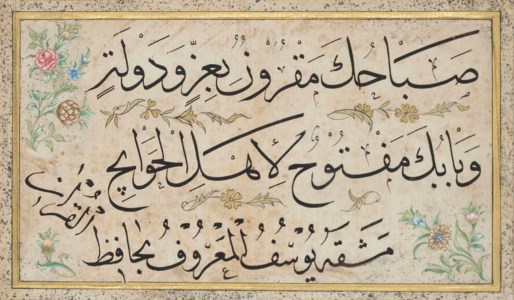 صَبَاحُكَ مَقْرُونٌ بِعِزٍّ وَدَوْلَةٍ
وَبَابُكَ مَفْتُوحٌ لِأَهْلِ الْحَوَائِجِ
مَشَقَهُ يُوسُفُ الْمَعْرُوفُ بِحَافِظ